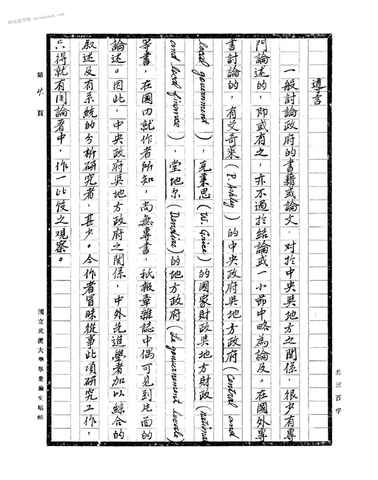 導言
一般討論政府的書籍或論文，對於中央與地方之關係，很少有專
門論述的，即或有之，亦不過於結論或一小節中略為論及。在國外專
書討論的，有艾奇萊（P. Ashley）的中央政府與地方政府（Central and
local government），克萊思（W. Grice）的國家財政與地方財政（national
and local finance），堂地尔的地方政府
等書，在國內就作者所知，尚無專書，祇報章雜誌中偶可見到片面的
論述。因此，中央政府與地方政府之關係，中外先進學者加以綜合的
敘述及有系統的分析研究者，甚少。今作者冒昧從事此項研究工作，
只得就有關論著中，作一比佼之觀察。
第 頁
國立武漢大學畢業論文稿紙